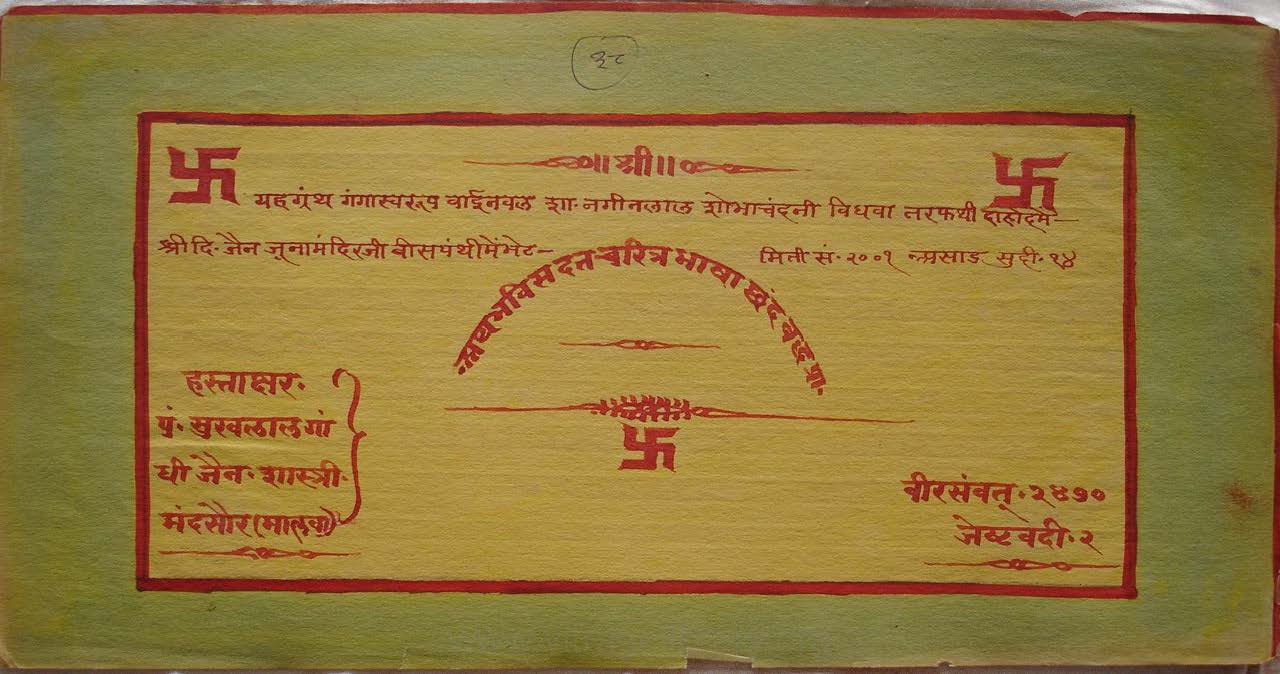 ३८
॥ श्री ॥
यह ग्रंथ गंगास्वरूप बाई नवल शा. नगीनलाल शोभाचंदनी विधवा तरफथी दाहोदमें—
श्री दि. जैन जूनामंदिरजी बीसपंथीमें भेट—
मिती सं. २००१ असाड सुदी. १४
अथ भविसदत्त चरित्र भाषा छंद बद्ध प्रा.
हस्ताक्षर.
पं. सुखलाल गां
धी जैन. शास्त्री.
मंदसौर (मालवा)
वीरसंवत्. २४७०
जेष्ट वदी. २